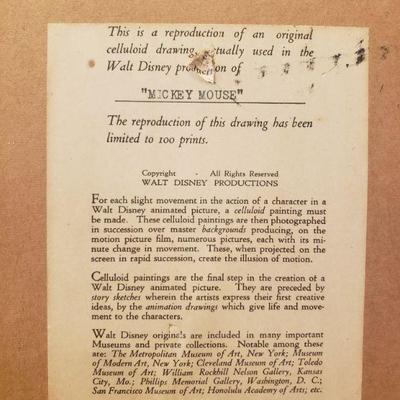 This is a reproduction of an original
celluloid drawing, actually used in the
Walt Disney production of
"MICKEY MOUSE"
The reproduction of this drawing has been
limited to 100 prints.
Copyright - All Rights Reserved
WALT DISNEY PRODUCTIONS
For each slight movement in the action of a character in
a Walt Disney animated picture, a celluloid painting must
be made. These celluloid paintings are then photographed
in succession over master backgrounds producing, on the
motion picture film, numerous pictures, each with its mi-
nute change in movement. These, when projected on the
screen in rapid succession, create the illusion of motion.
Celluloid paintings are the final step in the creation of a
Walt Disney animated picture. They are preceded by
story sketches wherein the artists express their first creative
ideas, by the animation drawings which give life and move-
ment to the characters.
Walt Disney originals are included in many important
Museums and private collections. Notable among these
are: The Metropolitan Museum of Art, New York; Museum
of Modern Art, New York; Cleveland Museum of Art; Toledo
Museum of Art; William Rockhill Nelson Gallery, Kansas
City, Mo.; Phillips Memorial Gallery, Washington, D. C.;
San Francisco Museum of Art; Honolulu Academy of Arts; etc.